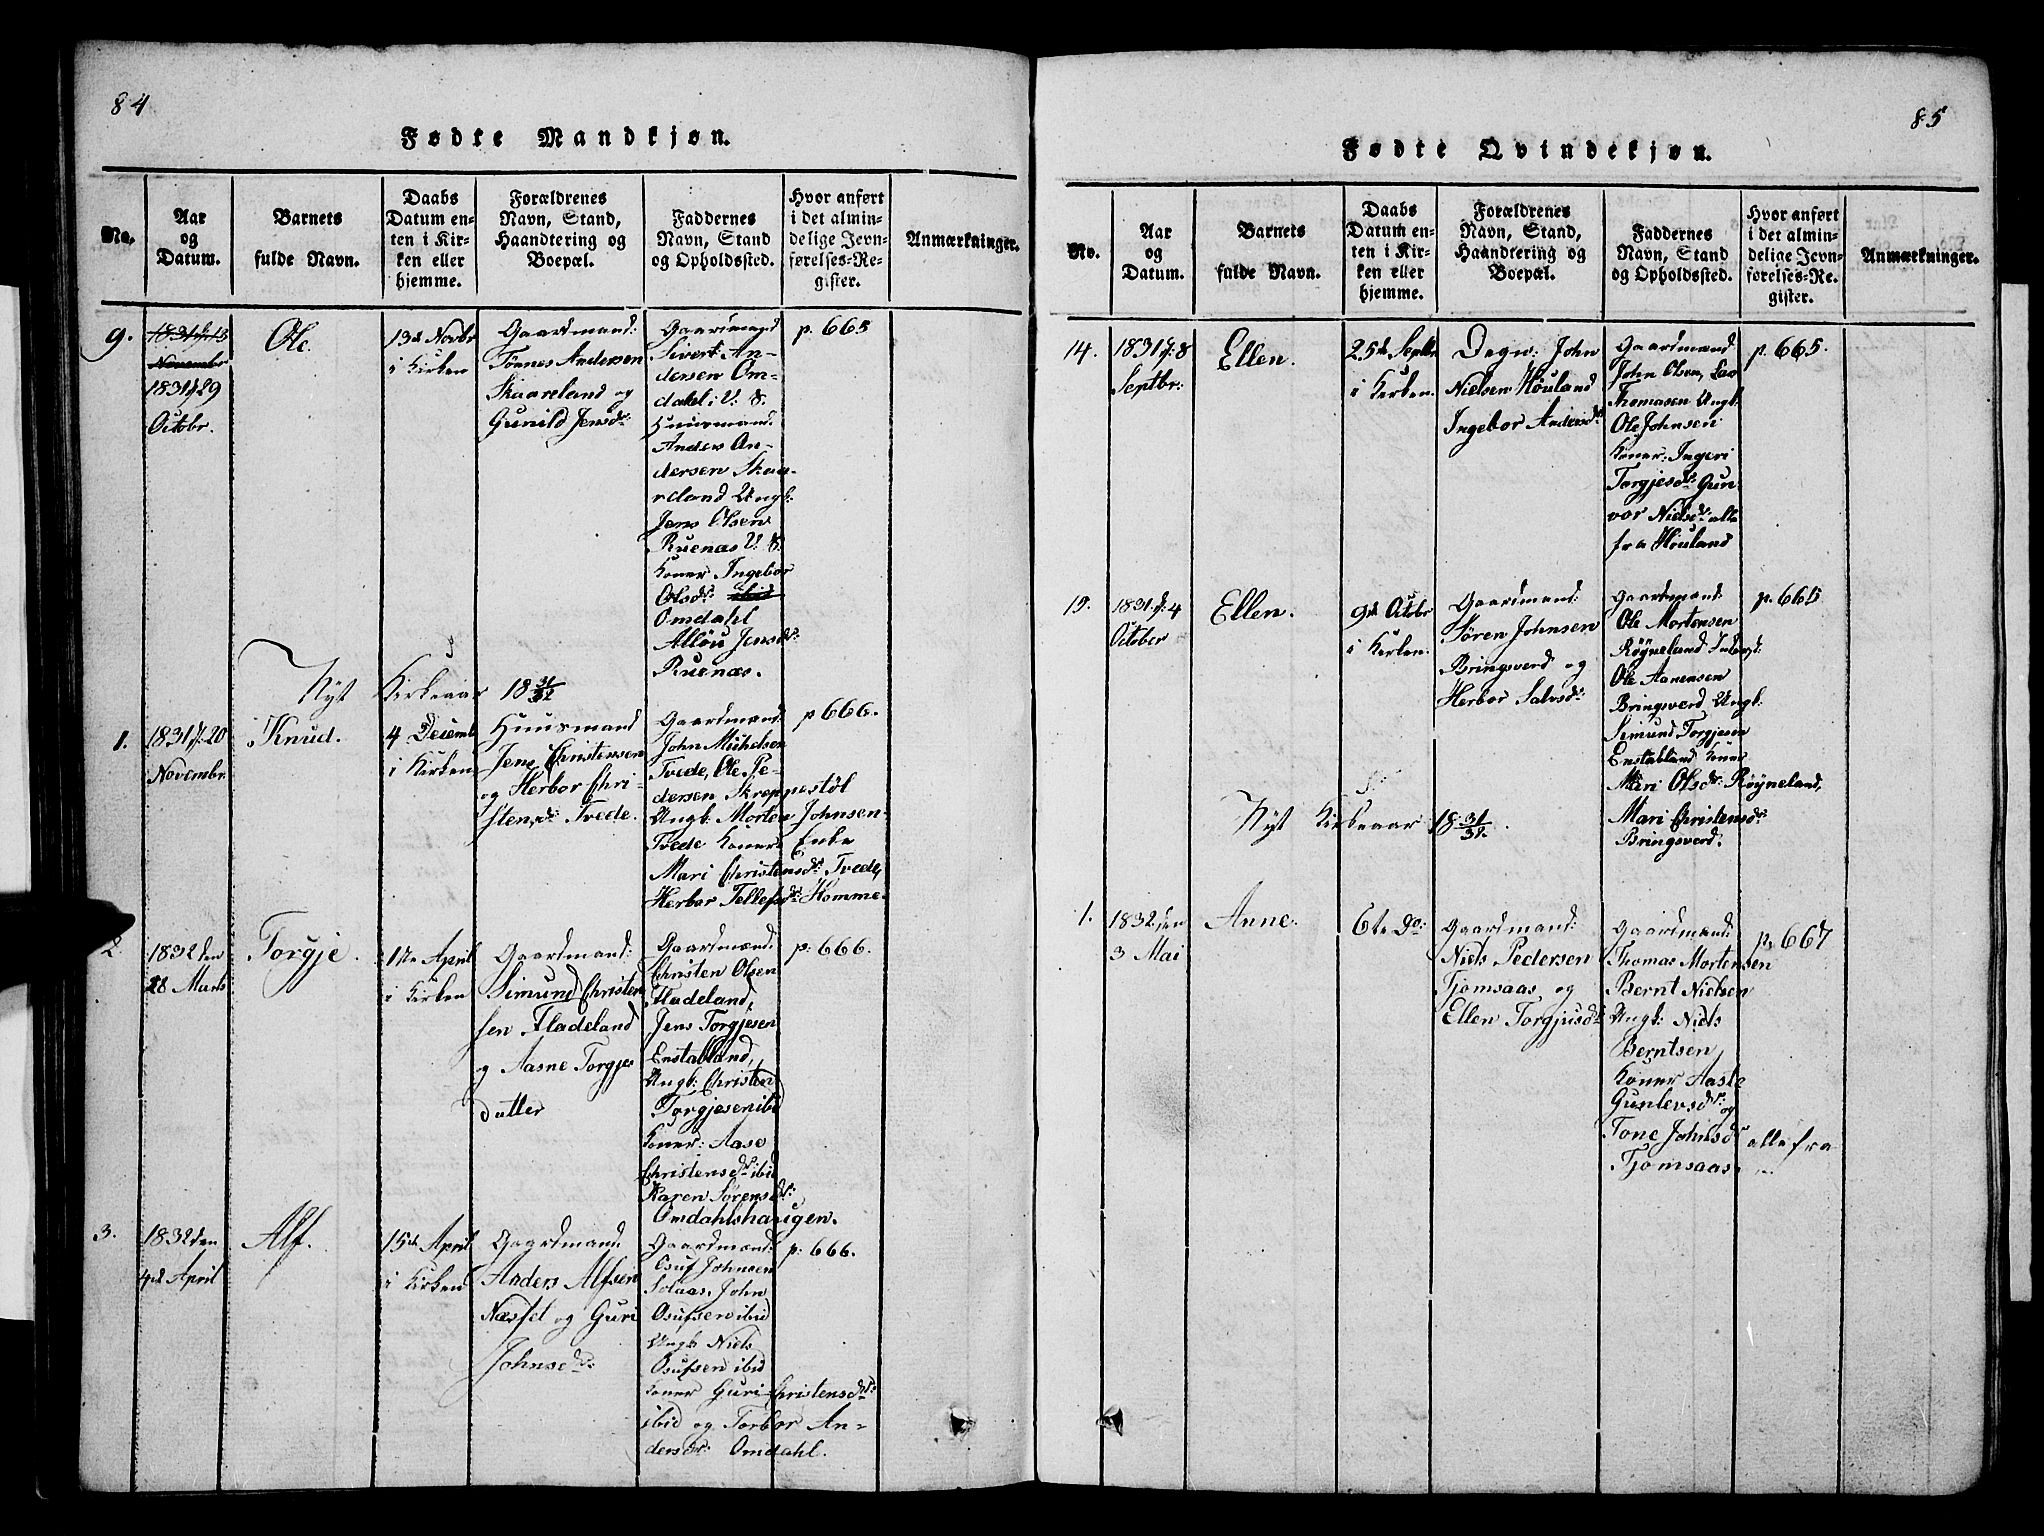 84
Fødte Mandkjøn.
No.
Aar
og
Datum.
Barnets
fulde Navn.
Daabs
Datum en-
ten i Kir-
ken eller
hjemme.
Forældrenes
Navn, Stand,
Haandtering og
Boepæl.
Faddernes
Navn, Stand
og Opholdssted.
Hvor anført
i det almin-
delige Jevn-
førelses-Re-
gister.
Anmærkninger.
9.
1831 d: 13
Novembr
1831 d: 29
Octobr.
Ole.
13de Novbr
i Kirken
Gaardmand:
Tönnes Andersen
Skaareland og
Gunild Jensdr:
Gaardmænd
Sivert An-
dersen Om-
dahl i V: S.
Huusmand.
Anders An-
dersen Skaa-
reland Ungk:
Jens Olsen
Ruenæs V: S.
Koner Ingebor
Olsdr: ibid
Omdahl
Allöu Jensdr:
Ruenæs.
p. 665
Nyt Kirkeaar 18 31/32
1.
1831 d: 20
Novembr
Knud.
4 Decemb
i Kirken
Huusmand
Jens Christensen
og Herbor Chri-
stensdr: Tvede.
Gaardmænd
John Michelsen
Tvede, Ole Pe-
dersen Skreppestöl
Ungk: Morten Johnsen
Tvede Koner Enke
Mari Christensdr: Tvede,
Herbor Tellefsdr: Homme.
p 666.
2.
1832 den
28 Marts
Torgje.
1ste April
i Kirken
Gaardmand:
Simund Christen
sen Fladeland
og Aasne Torgjes
datter
Gaardmænd.
Christen Olsen
Fladeland,
Jens Torgjesen
Enstabland,
Ungk: Christen
Torgjesen ibid
Koner: Aase
Christensdr: ibid
Karen Sörensdr:
Omdahlshaugen.
p: 666.
3.
1832 den
4de April
Alf.
15de April
i Kirken
Gaardmand.
Anders Alfsen
Næsset og Guri
Johnsdr:
Gaardmænd:
Osuf Johnsen
Solaas, John
Osufsen ibid
Ungk Niels
Osufsen ibid
Koner Guri Christensdr:
ibid og Torbor An-
dersdr: Omdahl.
p: 666.
85
Fødte Qvindekjøn.
No.
Aar
og
Datum.
Barnets
fulde Navn.
Daabs
Datum en-
ten i Kir-
ken eller
hjemme.
Forældrenes
Navn, Stand,
Haandtering og
Boepæl.
Faddernes
Navn, Stand
og Opholdssted.
Hvor anført
i det almin-
delige Jevn-
førelses-Re-
gister.
Anmærkninger.
14.
1831 d: 8
Septbr:
Ellen.
25de Septbr
i Kirken.
John
Nielsen Höuland
Ingebor Andersdr:
Gaardmænd.
John Olsen,
Thomasen Ungk:
Ole Johnsen
Koner: Ingeri
Torgjesdr: Gun-
vor Nielsdr: alle
fra Höuland
p. 665.
15.
1831. d: 4
October
Ellen.
9de Octbr
i Kirken.
Gaardmand:
Sören Johnsen
Bringsverd og
Herbor Salvesdr:
Gaardmænd:
Ole Mortensen
Röyneland
Ole Aanensen
Bringsverd Ungk:
Simund Torgjesen
Enstabland Koner
Mari Olsdr: Röyneland,
Mari Christensdr:
Bringsverd.
p. 665
Nyt Kirkeaar 18 31/32.
1.
1832 den
3 Mai
Anne.
6te Do:
Gaardmand:
Niels Pedersen
Tjomsaas og
Ellen Torgjusdr:
Gaardmænd:
Thomas Mortensen
Bernt Nielsen
Ungk: Niels
Berntsen,
Koner Aaste
Gunlevsdr: og
Tone Johnsdr: alle fra
Tjomsaas.
p. 667